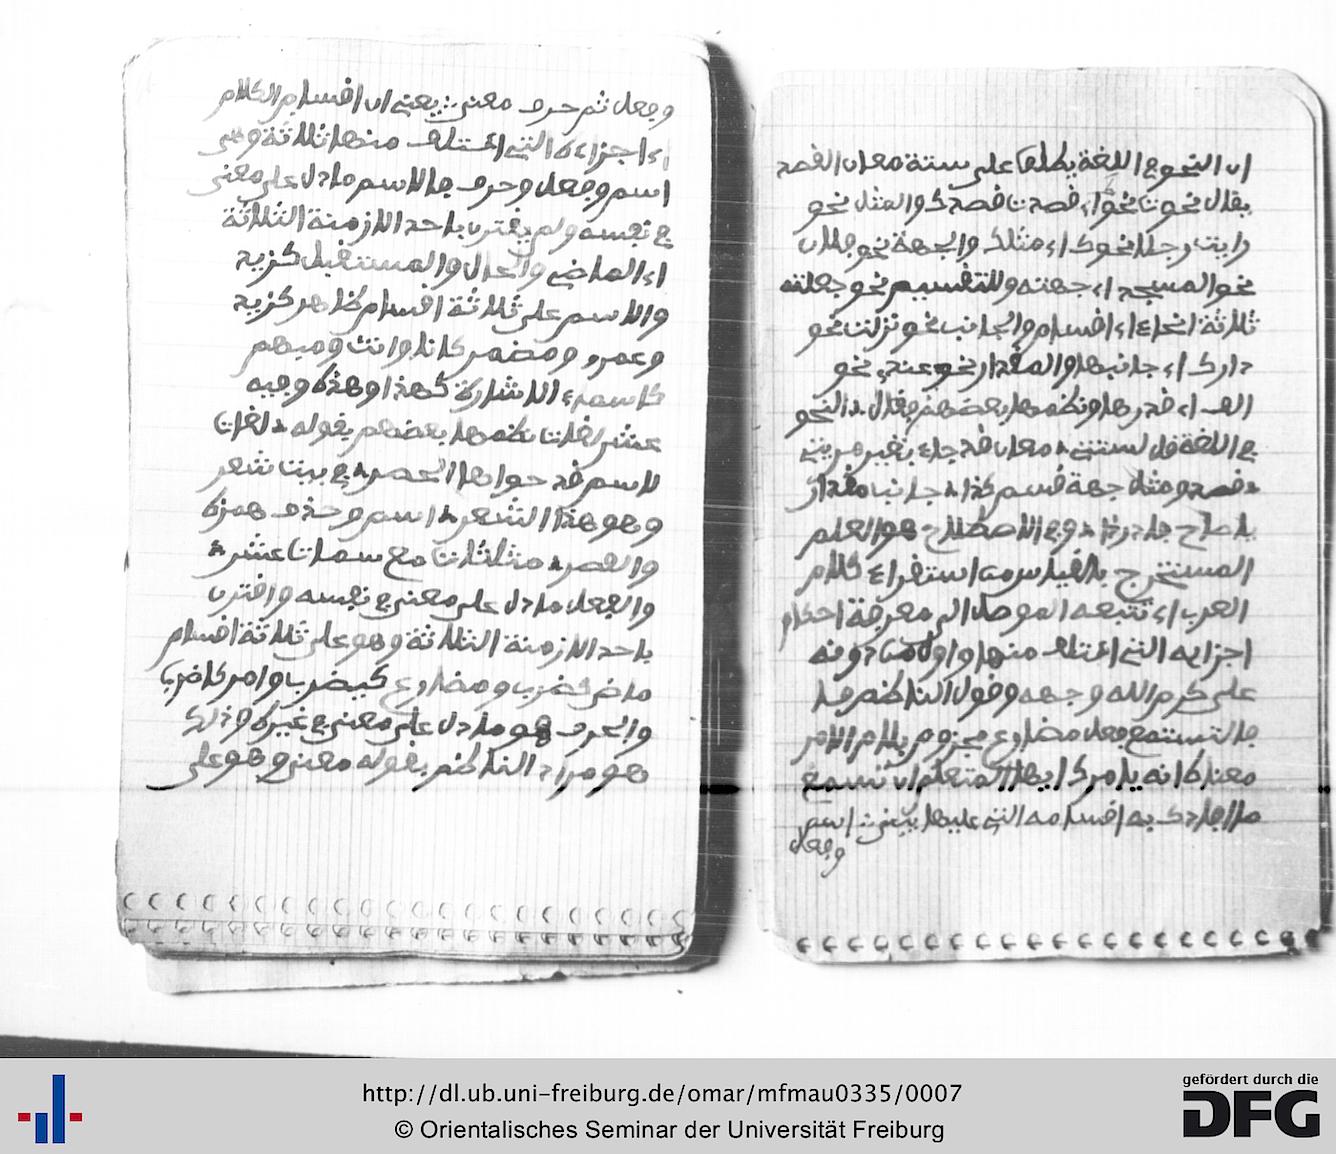 ان النحو في اللغة يطلق على ستة معان القصد
يقال نحوت نحوا اي قصدت قصدك والمثل نحو
رايت رجلا نحوك اي مثلك والجهة نحو
نحو المسجد اي جهته وللتقسيم نحو جعلته
ثلاثة انحاء اي اقسام والجانب نحو نزلت نحو
دارك اي جانبها والمقدار نحو عندي نحو
الف اي قدرها ونظمها بعضهم فقال النحو
في اللغة قل لستة معان قد جاء بغير مين
قصد ومثل جهة قسم كذا جانب مقدار
يا صاح وفي الاصطلاح هو العلم
المستخرج بالقياس من استقراء كلام
العرب اي تتبعه الموصل الى معرفة احكام
اجزايه التي ائتلف منها واول من دونه
علي كرم الله وجهه وقول الناظم
فالتستمع فعل مضارع مجزوم بلام الامر
معنا كانه يامرك ايها المتعلم ان تسمع
ما افادك به اقسامه التي عليها يبنى اسم
وفعل
وفعل ثم حرف معنى يعني ان اقسام الكلام
اي اجزاءه التي ائتلف منها ثلاثة وهي
اسم وفعل وحرف فالاسم ما دل على معنى
في نفسه ولم يقترن باحد الازمنة الثلاثة
اي الماضي والحال والمستقبل كزيد
والاسم على ثلاثة اقسام ظاهر كزيد
وعمرو ومضمر كانا وانت ومبهم
كاسماء الاشارة كهذا وهذه وفيه
عشر لغات نظمها بعضهم بقوله لغات
لاسم قد حواها الحصر في بيت شعر
وهو هذا الشعر اسم وحذف همزه
والقصر مثلثات مع سمات عشر
والفعل ما دل على معنى في نفسه واقترن
باحد الازمنة الثلاثة وهو على ثلاثة اقسام
ماض كضرب ومضارع كيضرب وامر كاضرب
والحرف هو ما دل على معنى في غيره وذلك
هو مراد الناظم بقوله معنى وهو على
http://dl.ub.uni-freiburg.de/omar/mfmau0335/0007
© Orientalisches Seminar der Universität Freiburg
gefördert durch die
DFG